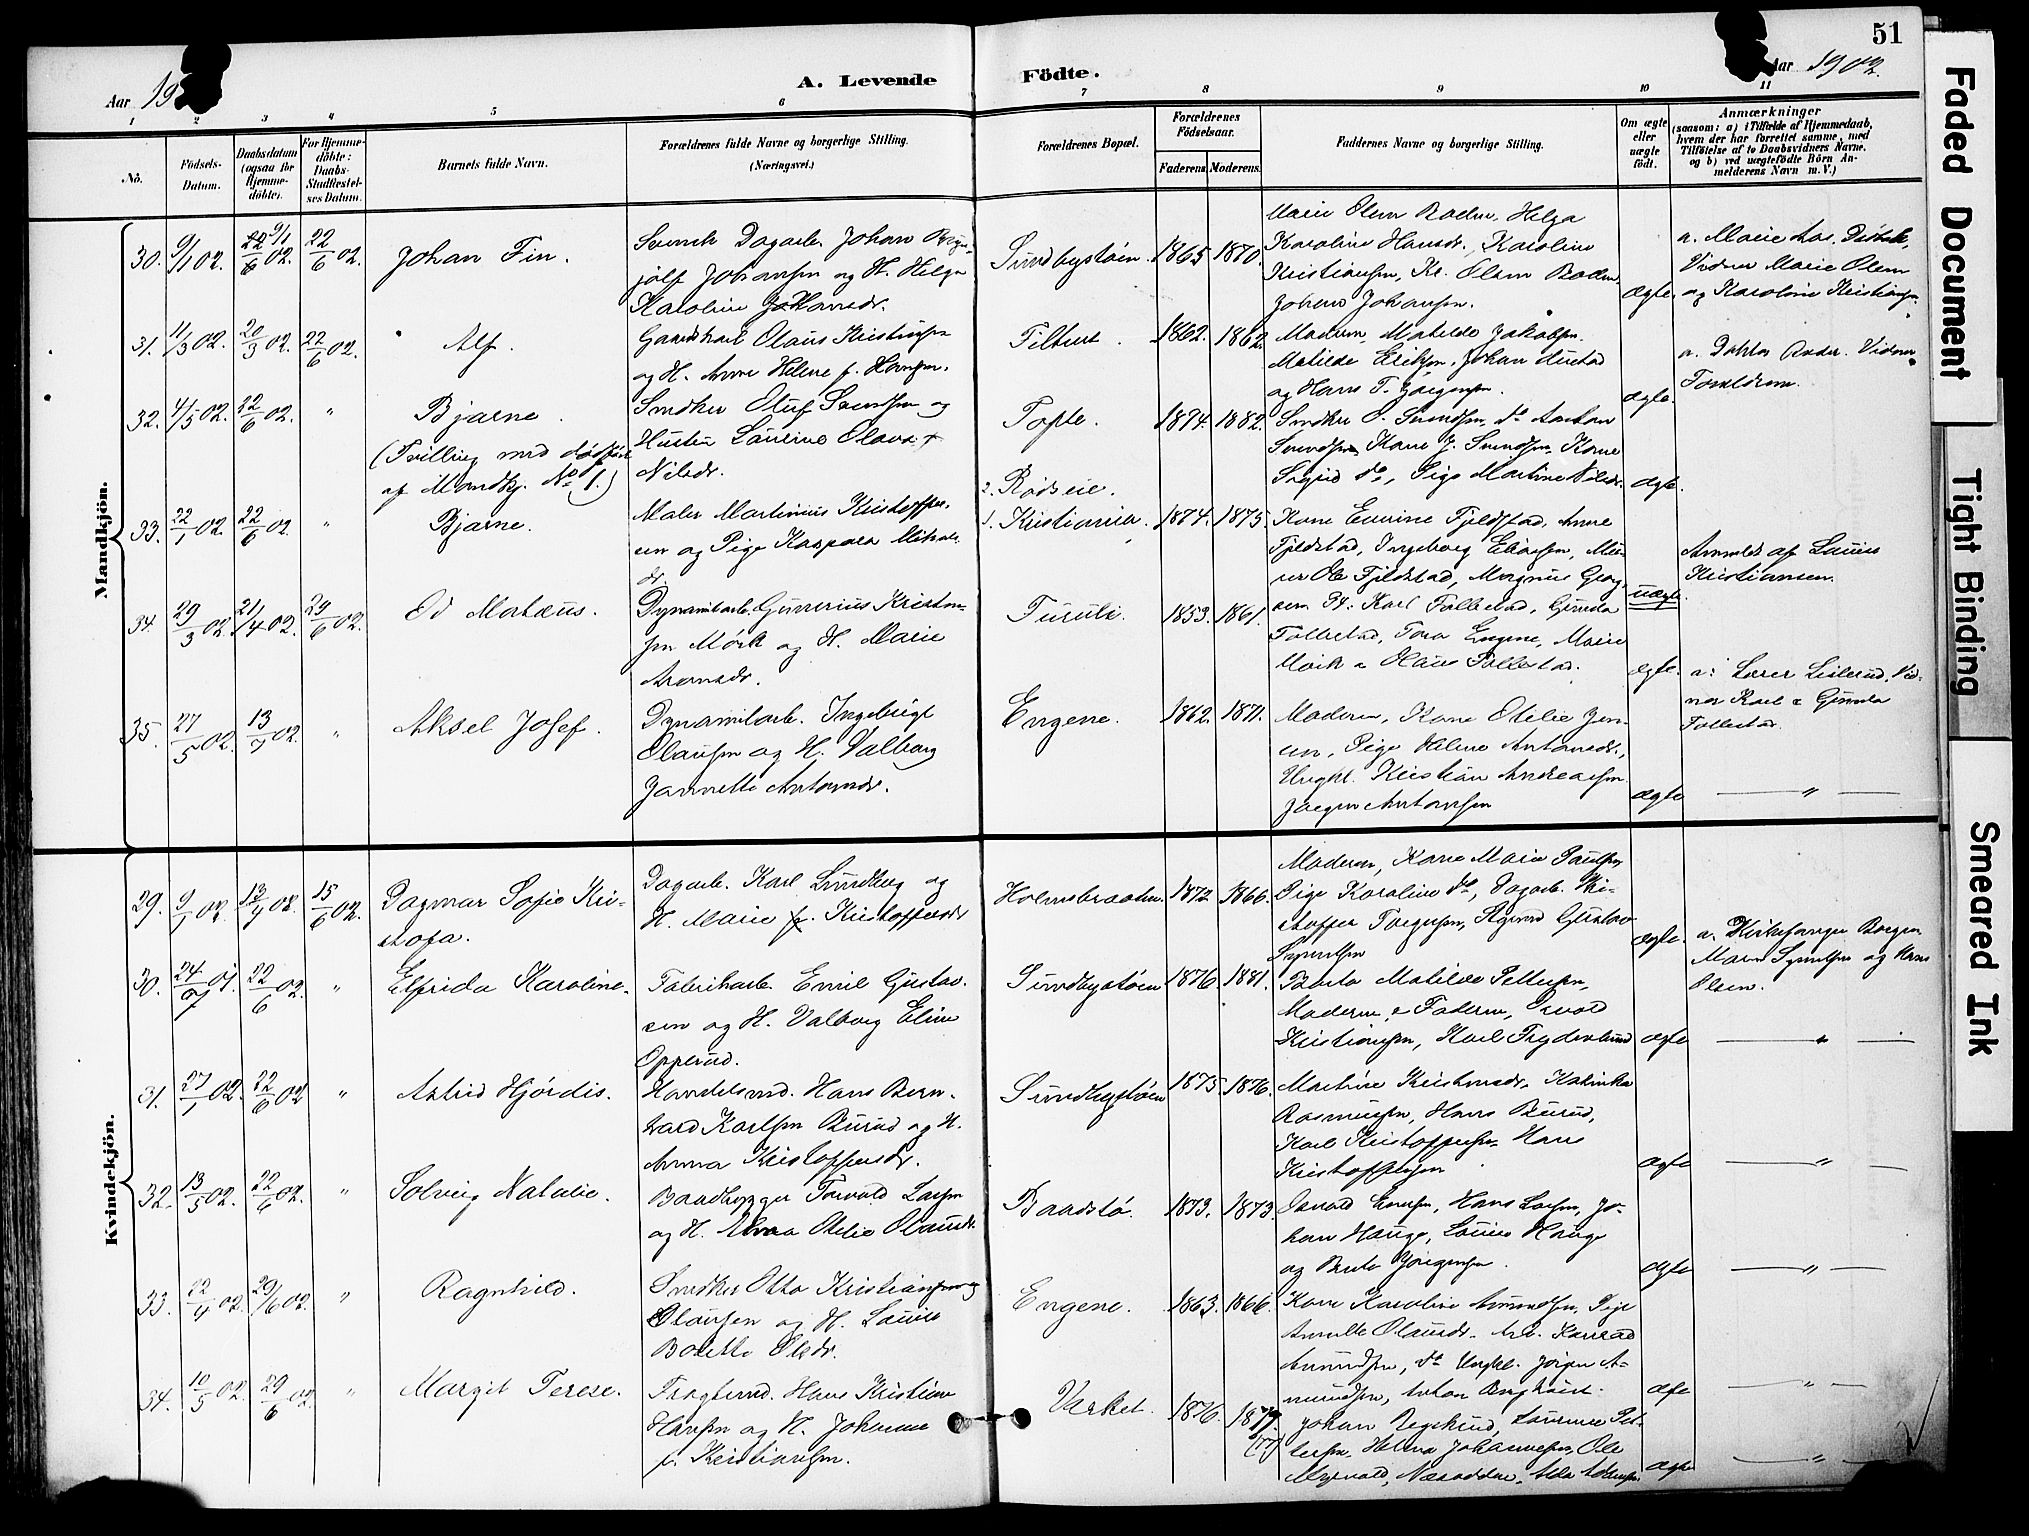 51
Aar 19
A. Levende Födte.
Aar 1902.
1 2 3 4 5 6 7 8 9 10 11
Nò.
Födsels-Datum.
Daabsdatum (ogsaa for Hjemme-döbte).
For Hjemme-döbte: Daabs-Stadfæstel-ses Datum.
Barnets fulde Navn.
Forældrenes fulde Navne og borgerlige Stilling. (Næringsvei.)
Forældrenes Bopæl.
Forældrenes Födselsaar.
Faderens. Moderens.
Faddernes Navne og borgerlige Stilling.
Om ægte eller uægte födt.
Anmærkninger
(saasom: a) i Tilfælde af Hjemmedaab, hvem der har forrettet samme, med Tilföielse af to Daabsvidners Navne, og b) ved uægtefödte Börn Anmelderens Navn m. V.)
Mandkjön.
30. 9/1 02. 22/6 02. 9/1 22/6 02. Johan Fin.
Svensk Dagarb. Johan
jolf Johansen og H. Helga
Karoline Hansdr.
Sundbystøen. 1865 1870.
Marie Olsen Roden, Helga
Karoline Hansdr., Karoline
Kristiansen, Kr. Olsen
Johan Johansen.
ægte.
a. Marie
Vidner Marie Olsen
og Karoline Kristians
31. 11/3 02. 20/3 02. 22/6 02. Alf.
Gaardkarl Olaus Kristiansen
og H. Anne Helene f. Hansen.
1862. 1862.
Moderen, Matilde Jakobsen,
Matilde Eriksen, Johan
og Hans T. Jørgensen.
ægte.
a. Doktor Vidner
Forældrene.
32. 4/5 02. 22/6 02. " Bjarne.
(Tvilling med dødfødt
af Mandkj. No 1.)
Snedker Oluf Svendsen og
Hustru Laurine Olava
Nilsdr.
Tofte. 1874. 1882.
Snedker O. Svendsen, do Anton
Svendsen, Kone J. Svendsen, Kone
Sigrid do, Pige Martine Nilsdr.
ægte.
33. 22/1 02. 22/6 02. " Bjarne.
Maler Martinius Kristoffer-
sen og Pige Kaspara Mikals
dr.
2. Rødseie.
1. Kristiania. 1874. 1875
Kone Evrine Fjeldstad, Anne
Fjeldstad, Ingeborg Eliasen,
Ole Fjeldstad, Magnus Georg
sen.
uægte
Anmeldt af Laura
Kristiansen.
34. 29/3 02. 21/4 02. 29/6 02. Od Mataus.
Dynamitarb. Gunerius Kristian-
sen Mørk og H. Marie
Aronsdr.
Furuli. 1853. 1861.
34: Karl Follestad, Gunda
Follestad, Tora Engene, Marie
Mørk & Olaus Follestad.
ægte.
a: Lærer Vid-
ner Karl & Gunda
Follestad.
35. 27/5 02. 13/7 02. " Aksel Josef.
Dynamitarb. Ingebrigt
Olausen og H. Valborg
Jannette Antonsdr.
Engene. 1862. 1871.
Moderen, Kone Otelie Jen-
sen, Pige Helene Antonsdr.,
Ungkl. Kristian Andreasen
Jørgen Antonsen
ægte
— " —
Kvindekjön.
29. 9/1 02. 13/4 02. 15/6 02. Dagmar Sofie Kri-
stofa.
Dagarb. Karl Lundberg og
H. Marie f. Kristoffersdr
Holmsbraaten. 1872 1866.
Moderen, Kone Marie Paulsen
Pige Karoline do, Dagarb. Kri-
stoffer Torgersen, Sigurd Gustav
Syvertsen
ægte.
a. Kirkesanger Borgen
Maren Syvertsen og Hans
Olsen.
30. 24/9 01. 22/6 02. " Elfrida Karoline.
Fabrikarb. Emil Gustav-
sen og H. Valborg Elise
Opperud.
Sundbystøen 1876. 1881.
Berta Matilde Pettersen,
Moderen & Faderen, Osvald
Kristiansen, Karl Frydenlund
ægte
— " —
31. 27/1 02. 22/6 02 " Astrid Hjørdis.
Handelsmd. Hans Bern-
hard Karlsen Burud og H.
Anna Kristoffersdr.
Sundbystøen 1875. 1876.
Martine Kristensdr., Katinka
Rasmussen, Hans Burud,
Karl Kristoffersen, Hans
Kristoffersen
ægte
— " —
32. 13/5 02. 22/6 02. " Solveig Natalie.
Baadbygger Torvald Larsen
og H. Alvaa Otelie Olausdr.
Baadstø. 1873. 1873.
Osvald Ensen, Hans Larsen, Jo-
han Hauge, Laura Hauge
og Berta Jørgensen.
ægte
— " —
33. 22/4 02. 29/6 02. " Ragnhild.
Snedker Otto Kristian
Olausen og H. Laura
Bolette Olsdr.
Engene. 1863. 1866.
Kone Karoline Amundsen, Pige
Annette Olausdr. Arb. Konrad
Amundsen, do Ungkl. Jørgen A-
mundsen, Anton
ægte
— " —
34. 10/5 02. 29/6 02. " Margit Terese.
Fragtemd. Hans Kristian
Hansen og H. Johanne
f. Kristiansen.
Verket. 1876. 1877.
(77)
Johan Laurense Pet-
tersen, Helene Johannesen, Ole
Myrvold, Næsodden,
ægte
— " —
Faded Document
Tight Binding
Smeared Ink